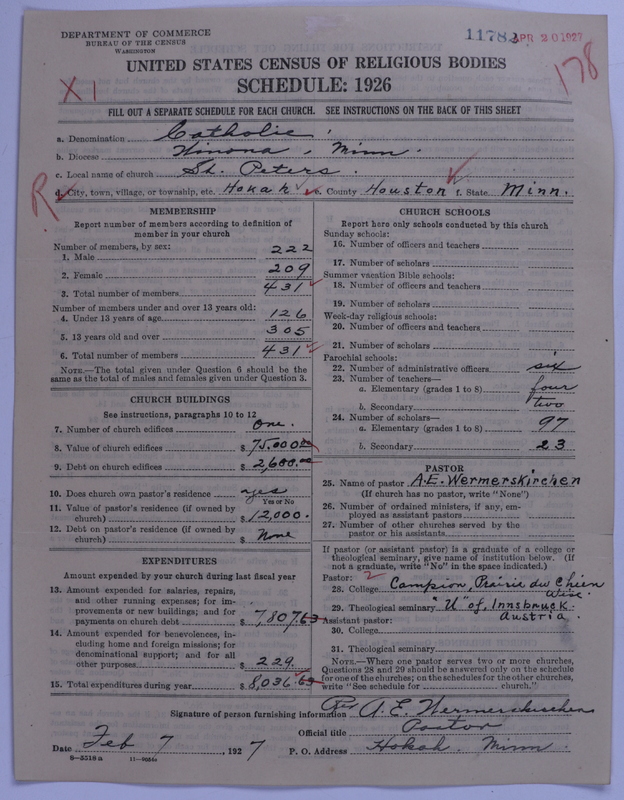 DEPARTMENT OF COMMERCE
BUREAU OF THE CENSUS
WASHINGTON
11782 APR 20 1927
178
X 1
UNITED STATES CENSUS OF RELIGIOUS BODIES
SCHEDULE: 1926
FILL OUT A SEPARATE SCHEDULE FOR EACH CHURCH. SEE INSTRUCTIONS ON THE BACK OF THIS SHEET
a. Denomination Catholic
b. Diocese Winona, Minn.
c. Local name of church St. Peters.
R
d. City, town, village, or township, etc. Hokah e. County Houston f. State Minn.
MEMBERSHIP
Report number of members according to definition of
member in your church
Number of members, by sex:
1. Male 222
2. Female 209
3. Total number of members 431
Number of members under and over 13 years old:
4. Under 13 years of age 126
5. 13 years old and over 305
6. Total number of members 431
NOTE.—The total given under Question 6 should be
same as the total of males and females given under Question 3.
CHURCH BUILDINGS
See instructions, paragraphs 10 to 12
7. Number of church edifices one.
8. Value of church edifices $ 75,000.00
9. Debt on church edifices $ 2,600.00
10. Does church own pastor's residence yes
Yes or No
11. Value of pastor's residence (if owned by
church) $ 12,000.
12. Debt on pastor's residence (if owned by
church) $ None
EXPENDITURES
Amount expended by your church during last fiscal year
13. Amount expended for salaries, repairs,
and other running expenses; for im-
provements or new buildings; and for
payments on church debt $ 7,807.63
14. Amount expended for benevolences, in-
cluding home and foreign missions; for
denominational support; and for all
other purposes $ 229.
15. Total expenditures during year $ 8,036.63
CHURCH SCHOOLS
Report here only schools conducted by this church
Sunday schools:
16. Number of officers and teachers
17. Number of scholars
Summer vacation Bible schools:
18. Number of officers and teachers
19. Number of scholars
Week-day religious schools:
20. Number of officers and teachers
21. Number of scholars
Parochial schools:
22. Number of administrative officers six
23. Number of teachers—
a. Elementary (grades 1 to 8) four
b. Secondary two
24. Number of scholars—
a. Elementary (grades 1 to 8) 97
b. Secondary 23
PASTOR
25. Name of pastor A.E. Wermerskirchen
(If church has no pastor, write "None")
26. Number of ordained ministers, if any, em-
ployed as assistant pastors
27. Number of other churches served by the
pastor or his assistants
If pastor (or assistant pastor) is a graduate of a college or
theological seminary, give name of institution below. (If
not a graduate, write "No" in the space indicated.)
Pastor: 2
28. College Campion, Prairie du Chien
Wisc.
29. Theological seminary "U" of, Innsbruck
Austria.
Assistant pastor:
30. College
31. Theological seminary
NOTE.—Where one pastor serves two or more churches,
Questions 28 and 29 should be answered only on the schedule
for one of the churches; on the schedules for the other churches,
write "See schedule for church."
Signature of person furnishing information Rev A. E. Wermerskirchen
Official title Pastor
Date Feb 7, 1927 P. O. Address Hokah, Minn.
8-5518 a 11-9084a